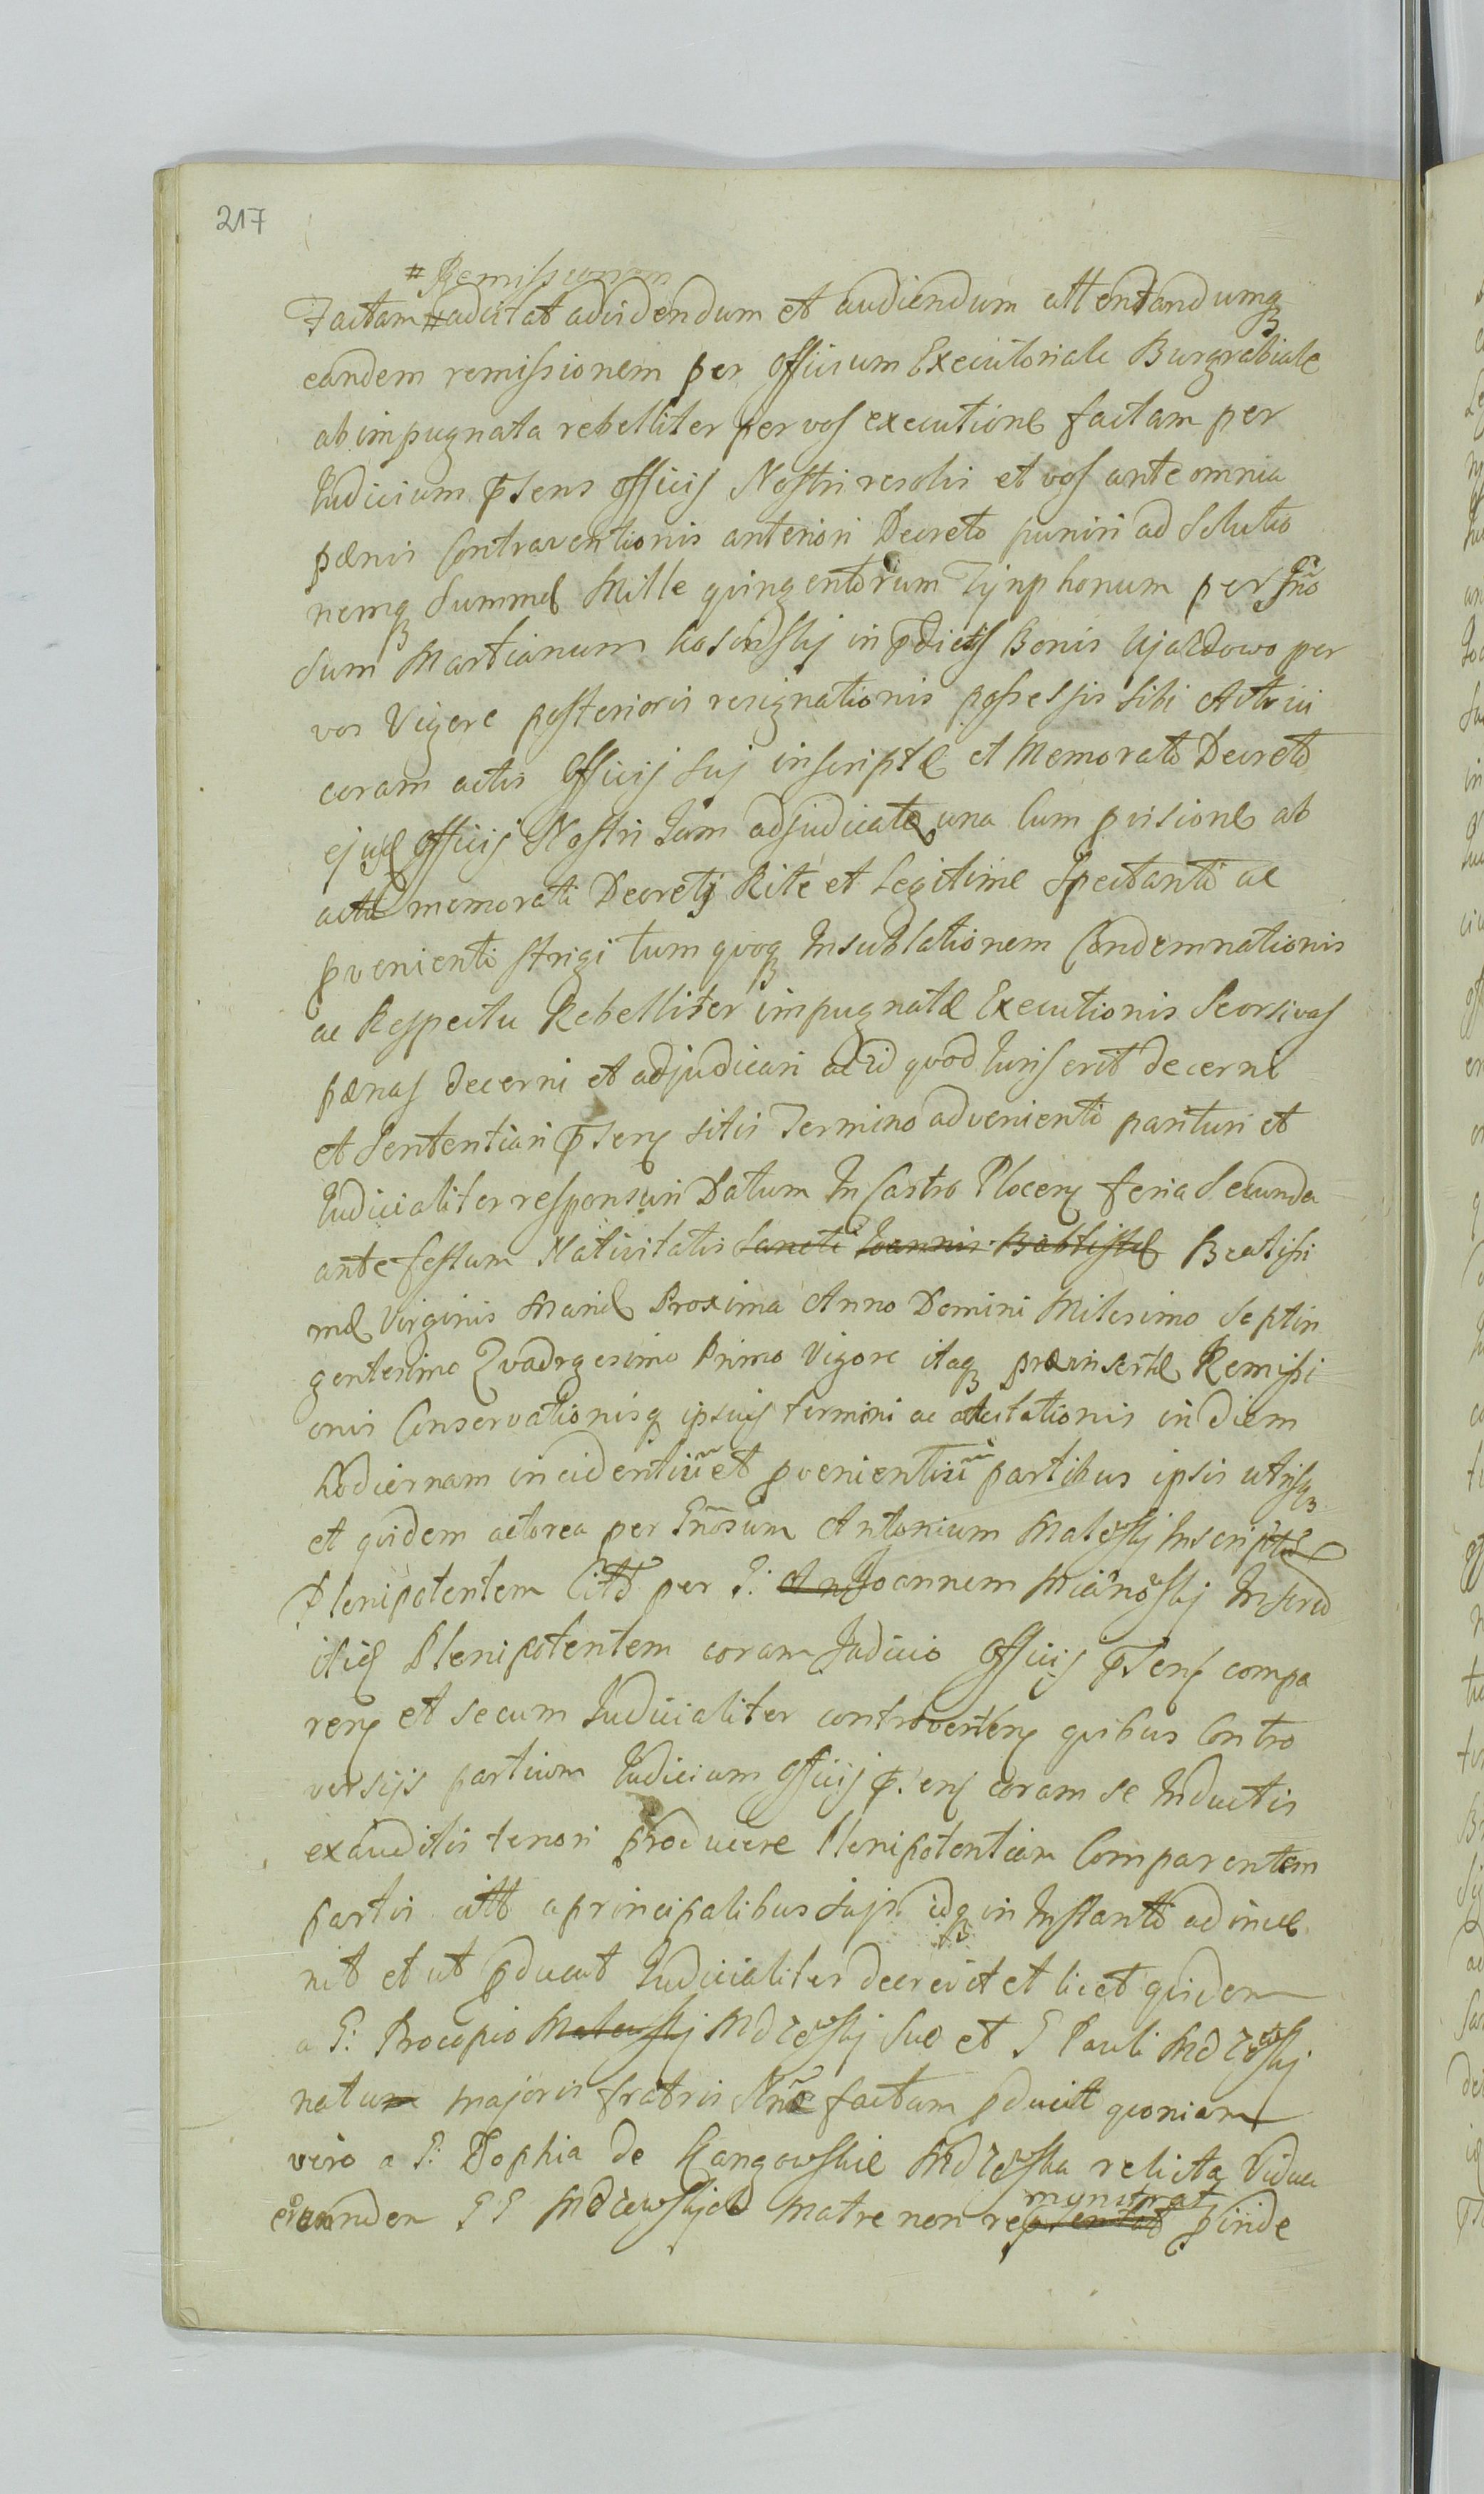 217
# Remissionem
Factam # adcitat advidendum et audiendum attentandumq
eandem remissionem per officium Executoriale Burgrabiale
ab impugnata rebelliter per vos executione factam per
Iudicium pñsens officij Nostri resolvi et vos ante omnia
pænis Contraventionis anteriori Decreto puniri ad Solutio
nemq Summæ Mille qvingentorum Tynphonum per Gñro
sum Martianum Kosinskij in pdictis Bonis Ujazdowo per
vos Vigore posterioris resignationis possessis sibi Actrici
coram actis officij sui inscriptæ et Memorato Decreto
ejusd officij Nostri Iam adjudicatæ una Cum pvisione ab
actu memorati Decretj Rite et Legitime Spectanti ac
pvenienti strigi tum qvoq Insublationem Condemnationis
ac Respectu Rebelliter impugnatæ Executionis Seorsivas
pænas decerni et adjudicari ac id qvod Iuris erit decerni
et Sententiari pñsens sitis Termino advenienti parituri et
Iudicialiter responsuri Datum In Castro Plocens feria Secunda
ante festum Nativitatis Sancti Ioannis Babtistæ Beatissi
mæ Virginis Mariæ Proxima Anno Domini Milesimo Septin
gentesimo Qvadrgesimo Primo Vigore itaq præinsertæ Remissi
onis Conservationisq ipsius termini ac adcitationis in diem
hodiernam incidentiũ et pvenientiũ partibus ipsis utrisq
et qvidem actorea per Gñosum Antonium Malewskj Inscriptũ
Plenipotentem Cittã per G: An Joannem Mianowskj Inscrip
Plenipotentem coram Judicio officij pñsens compa
rens et secum Iudicialiter controvertens qvibus Contro
versijs partium Iudicium officij pñsens coram se Inductis
exauditis tenori producere Plenipotentiam Comparentem
partis citt a principalibus suis idq in Instanti adinve
nit et ut pducat Iudicialiter decrevit et licet qvidem
a G: Procopio Malewskj Mdzewskj Suo et G Pauli Mdzewskj
natu majoris fratris Nñe factam pducit qvoniam
vero a G: Sophia de Kangowskie Mdzewska relicta Vidua
eorunden G G Mdzewskich Matre non represental monstrat pinde